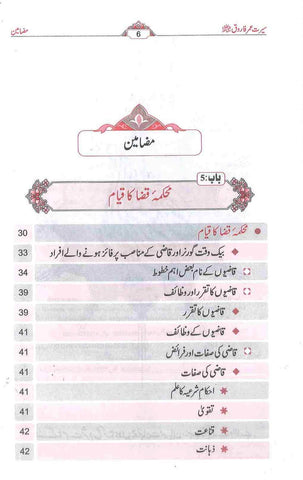 سیرت عمر فاروق رضی اللہ عنہ
6
مضامین
مضامین
باب: 5
محکمۂ قضا کا قیام
محکمۂ قضا کا قیام 30
بیک وقت گورنر اور قاضی کے مناصب پر فائز ہونے والے افراد 33
قاضیوں کے نام بعض اہم خطوط 34
قاضیوں کا تقرر اور وظائف 39
قاضیوں کا تقرر 39
قاضیوں کے وظائف 41
قاضی کی صفات اور فرائض 41
قاضی کی صفات 41
احکام شرعیہ کا علم 41
تقویٰ 41
قناعت 42
ذہانت 42